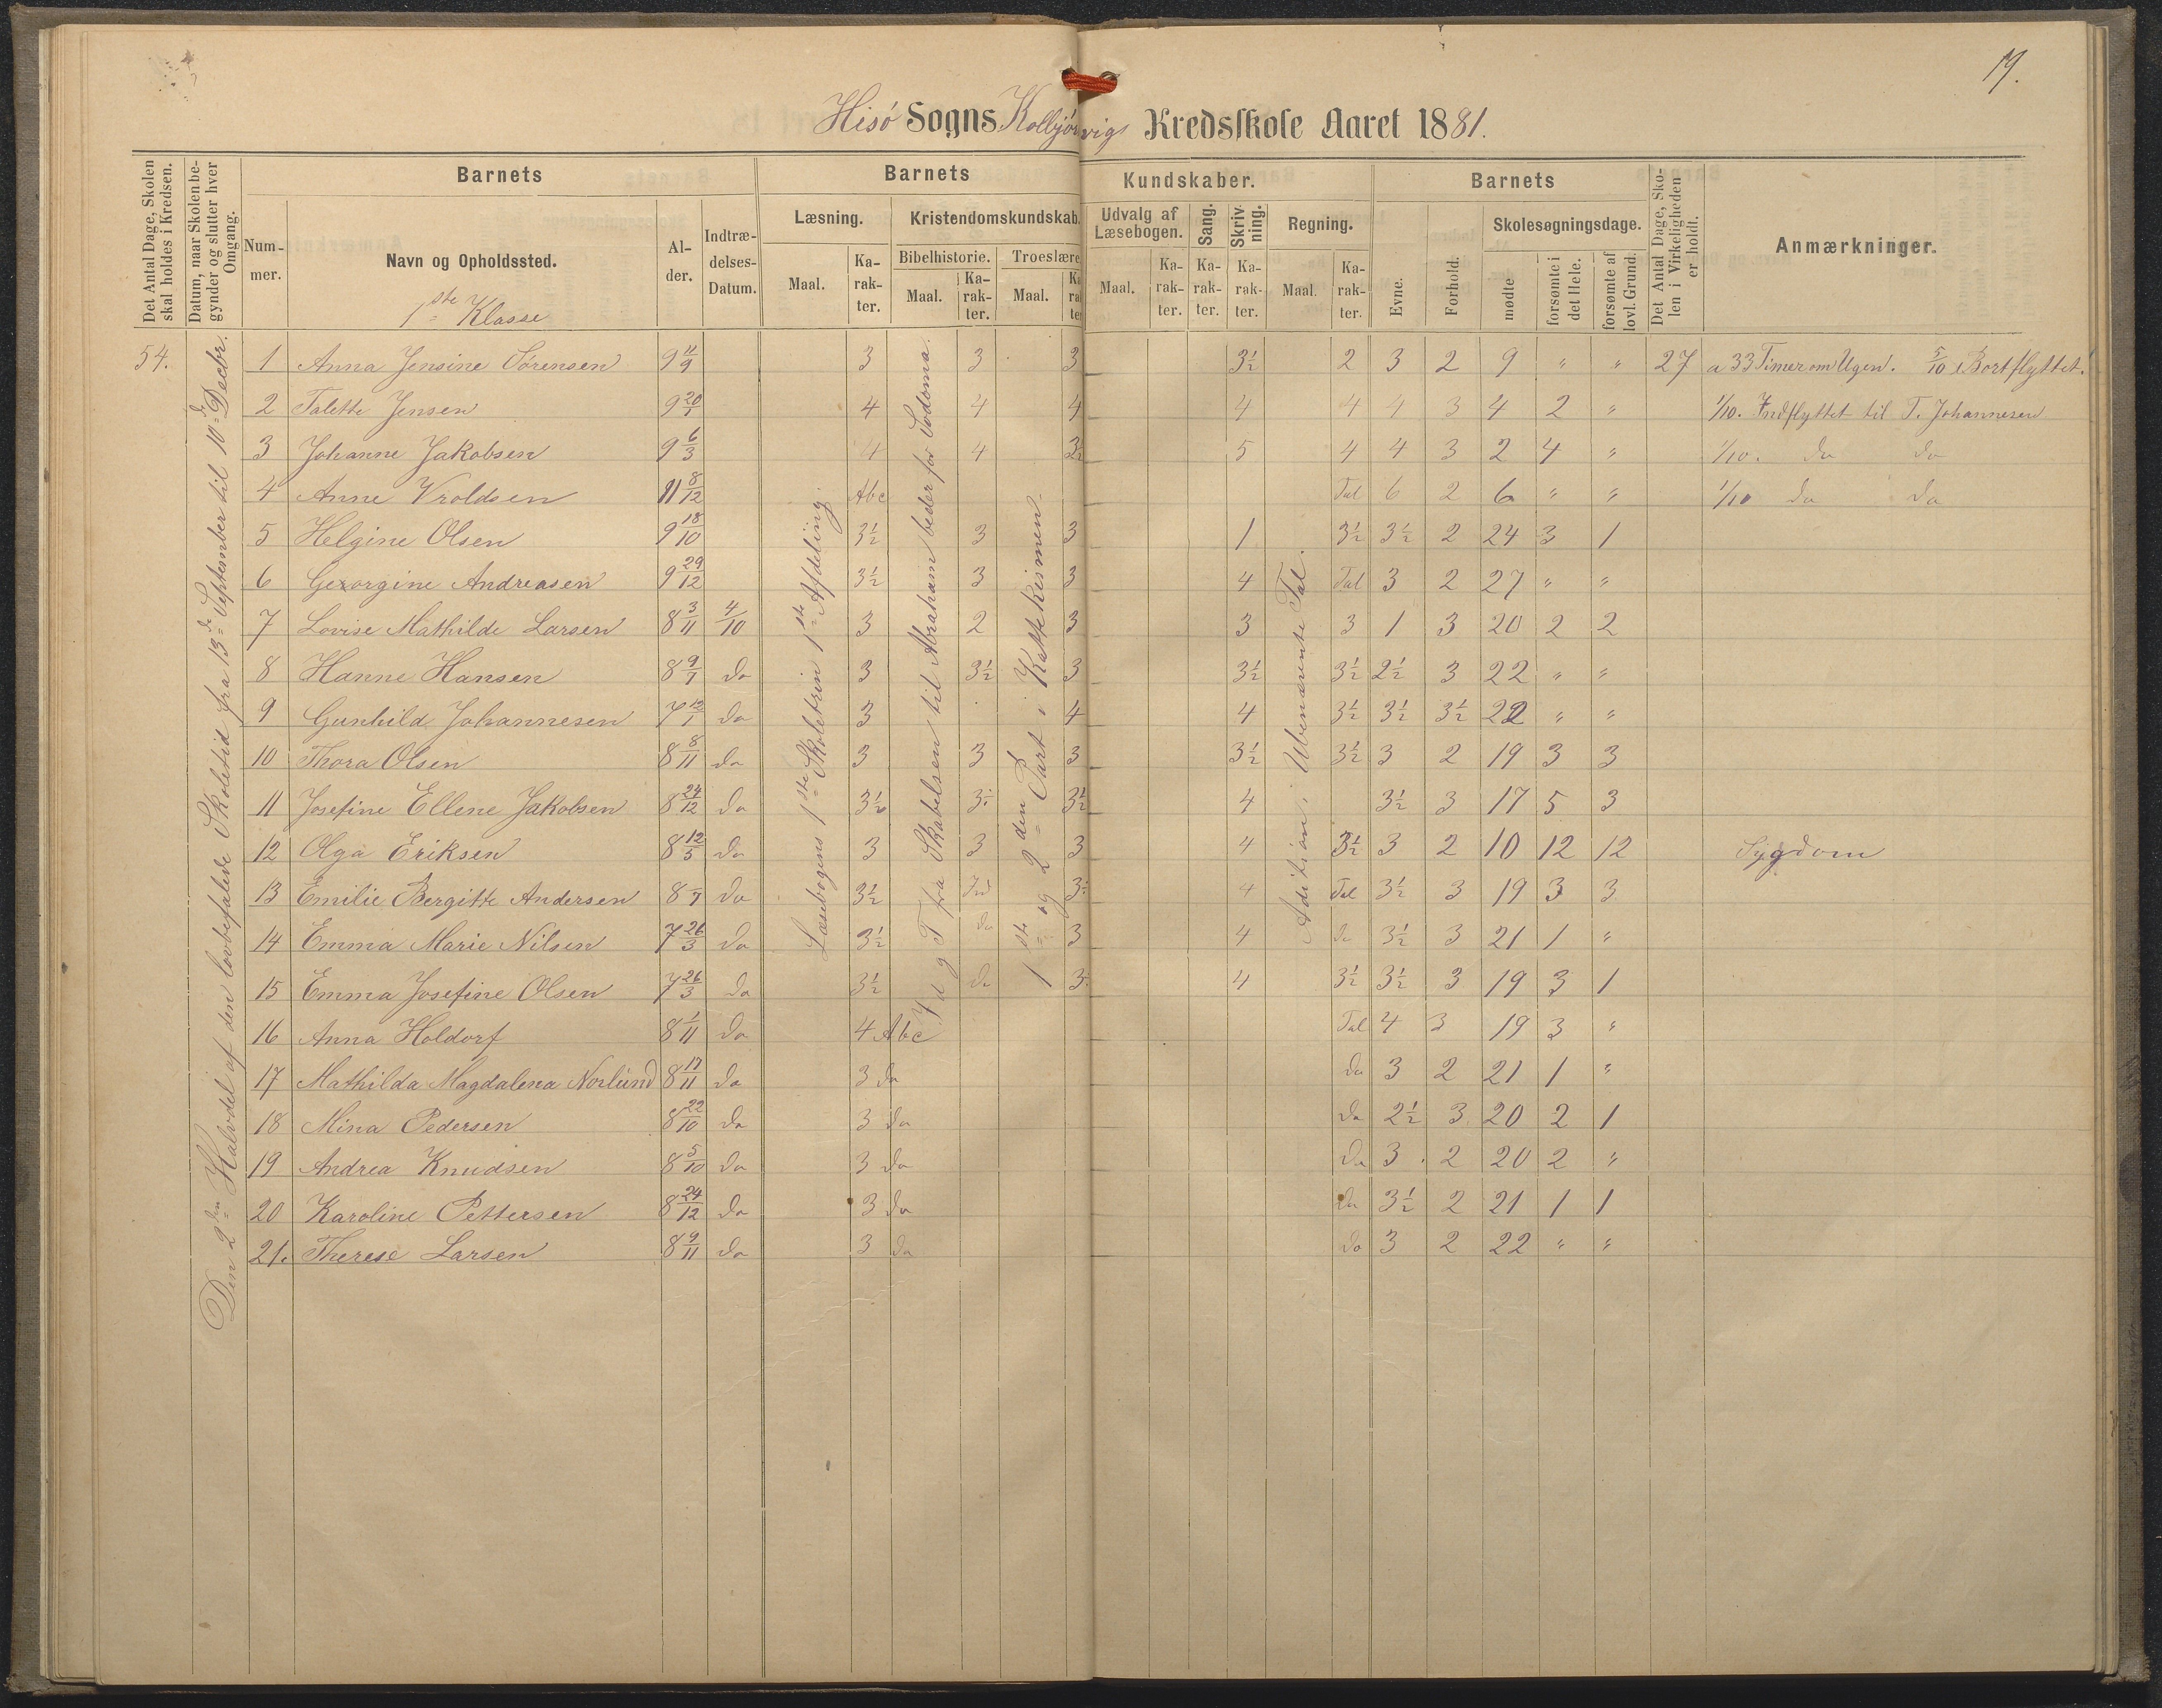 19.
Hisø Sogns Kolbjørnsvigs Kredsskole Aaret 1881.
Det Antal Dage, Skolen skal holdes i Kredsen.
Datum, naar Skolen begynder og slutter hver Omgang.
Barnets
Nummer.
Navn og Opholdssted.
Alder.
Indtrædelses-Datum.
Barnets Kundskaber.
Læsning.
Maal.
Karakter.
Kristendomskundskab.
Bibelhistorie.
Maal.
Karakter.
Troeslære
Maal.
Udvalg af Læsebogen.
Maal.
Karakter.
Sang.
Karakter.
Skrivning.
Karakter.
Regning.
Maal.
Karakter.
Barnets
Evne.
Forhold.
Skolesøgningsdage.
mødte
forsømte i det Hele.
forsømte af lovl. Grund.
Det Antal Dage, Skolen i Virkeligheden er holdt.
Anmærkninger.
1ste Klasse
54.
Den 2den Halvdel af den lovbefalede Skoletid fra 13de September til 10de Decbr.
Læsebogens 1ste Skoletrin 1ste Afdeling.
fra Skabelsen til Abraham beder for Sodoma.
1ste og 2den Part i Katekismen.
Addition i Ubenævnte Tal.
1 Anna Jensine Sørensen 9 11/9 3 3 3 3½ 2 3 2 9 " " 27 a 33 Timer om Ugen. 5/10 Bortflyttet.
2 Talette Jensen 9 20/1 4 4 4 4 4 4 3 4 2 " 1/10. Indflyttet til T. Johannesen
3 Johanne Jakobsen 9 6/3 4 4 3½ 5 4 4 3 2 4 " 1/10. do do
4 Anne Vroldsen 11 8/12 Abc Tal 6 2 6 " " 1/10 do do
5 Helgine Olsen 9 18/10 3½ 3 3 1 3½ 3½ 2 24 3 1
6 Georgine Andreasen 9 29/12 3½ 3 3 4 Tal 3 2 27 " "
7 Lovise Mathilde Larsen 8 3/11 4/10 3 2 3 3 3 1 3 20 2 2
8 Hanne Hansen 8 9/7 do 3 3½ 3 3½ 3½ 2½ 3 22 " "
9 Gunhild Johannesen 7 12/1 do 3 4 4 3½ 3½ 3½ 22 " "
10 Thora Olsen 8 8/11 do 3 3 3 3½ 3½ 3 2 19 3 3
11 Josefine Ellene Jakobsen 8 24/12 do 3½ 3½ 3½ 4 3½ 3 17 5 3
12 Olga Eriksen 8 12/5 do 3 3 3 4 3½ 3 2 10 12 12 Sygdom
13 Emilie Bergitte Andersen 8 /7 do 3½ Ind 3½ 4 Tal 3½ 3 19 3 3
14 Emma Marie Nilsen 7 26/3 do 3½ do 3 4 do 3½ 3 21 1 "
15 Emma Josefine Olsen 7 26/3 do 3½ do 3½ 4 3½ 3½ 3 19 3 1
16 Anna Holdorf 8 1/11 do 4 Abc Tal 4 3 19 3 "
17 Mathilda Magdalena Norlund 8 17/11 do 3 do do 3 2 21 1 "
18 Mina Pedersen 8 22/10 do 3 do do 2½ 3 20 2 1
19 Andrea Knudsen 8 5/10 do 3 do do 3 2 20 2 "
20 Karoline Pettersen 8 24/12 do 3 do do 3½ 2 21 1 1
21. Therese Larsen 8 9/11 do 3 do do 3 2 22 " "